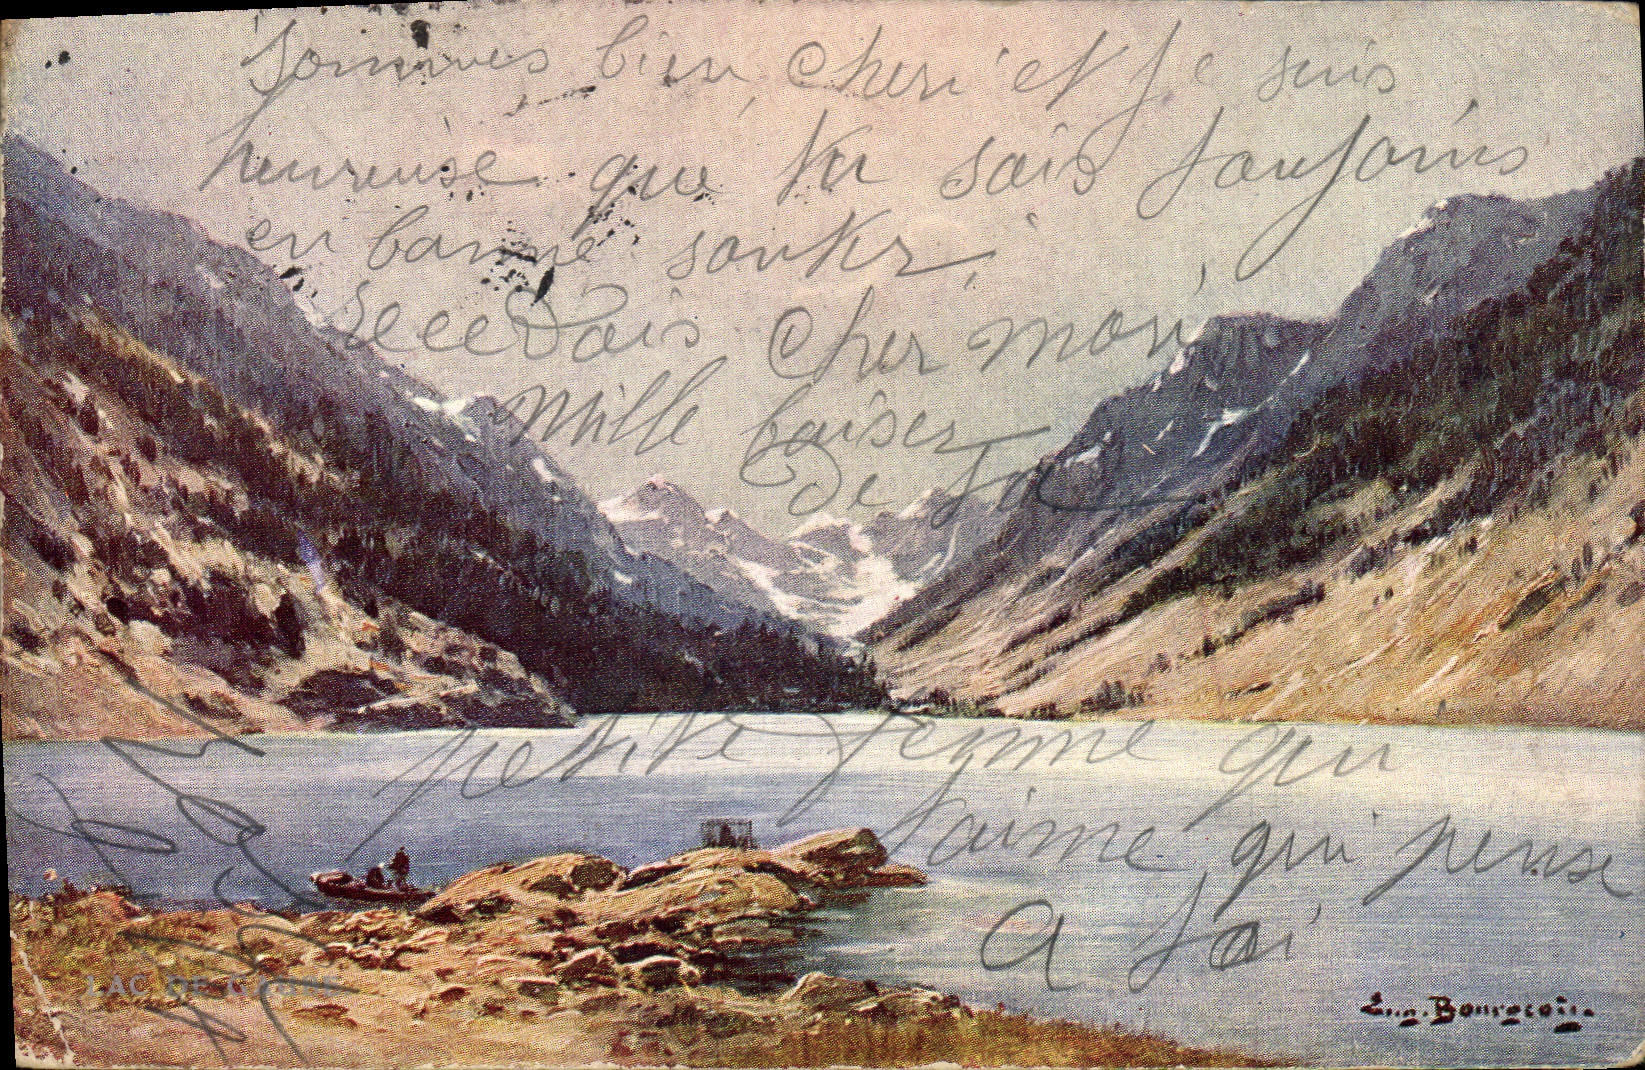 sommes bien cheri et je suis
heureuse que tu sois toujours
en bonne santer
Recevois cher mari
mille baiser
de ta
petite femme qui
t'aime qui pense
A toi
LAC DE GAUBE
Eug. Bourgeois